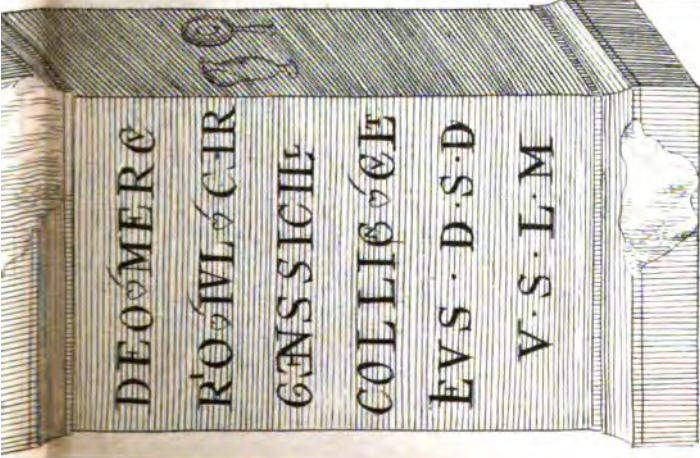 DEO❦MERC
RIO❦IVL❦CƎIR
GENSSIGIL
COLLIG❦CE
EVS · D · S · D
V · S · L · M